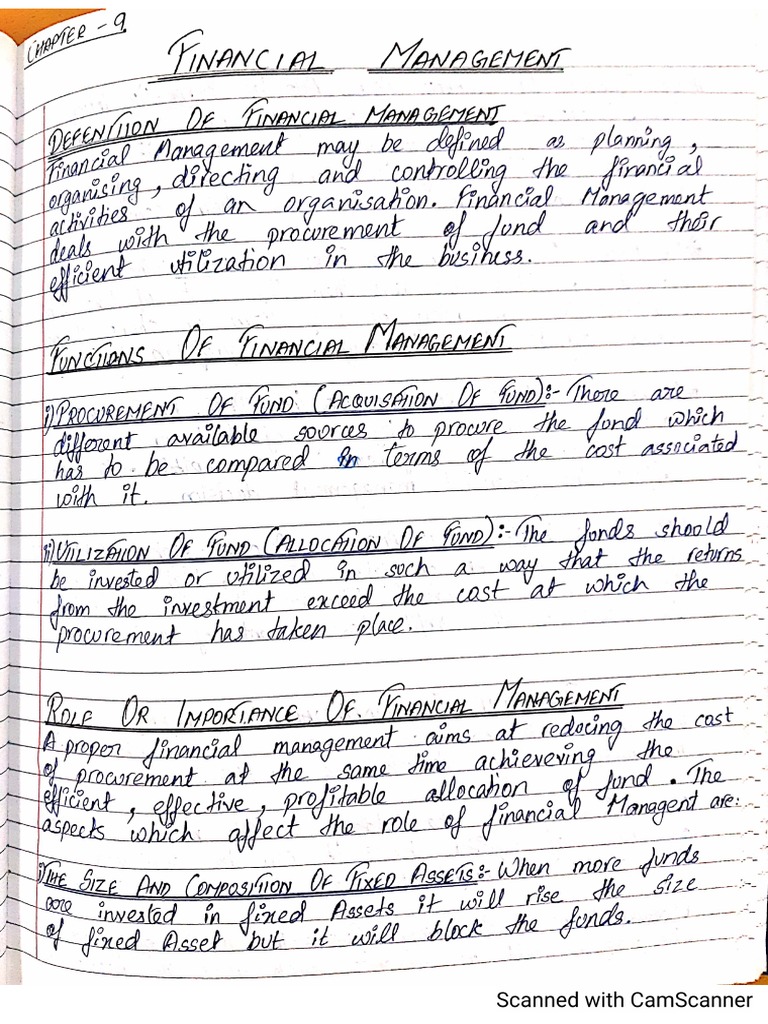 CHAPTER - 9
FINANCIAL MANAGEMENT
DEFENITION OF FINANCIAL MANAGEMENT
Financial Management may be defined as planning,
organising, directing and controlling the financial
activities of an organisation. Financial Management
deals with the procurement of fund and their
efficient utilization in the business.
FUNCTIONS OF FINANCIAL MANAGEMENT
i) PROCUREMENT OF FUND (ACQUISATION OF FUND):- There are
different available sources to procure the fund which
has to be compared in terms of the cost associated
with it.
ii) UTILIZATION OF FUND (ALLOCATION OF FUND):- The funds should
be invested or utilized in such a way that the returns
from the investment exceed the cost at which the
procurement has taken place.
ROLE OR IMPORTANCE OF FINANCIAL MANAGEMENT
A proper financial management aims at reducing the cost
of procurement at the same time achieveving the
efficient, effective, profitable allocation of fund. The
aspects which affect the role of financial Managent are:
i) THE SIZE AND COMPOSITION OF FIXED ASSETS:- When more funds
are invested in fixed Assets it will rise the size
of fixed Asset but it will block the funds.
Scanned with CamScanner